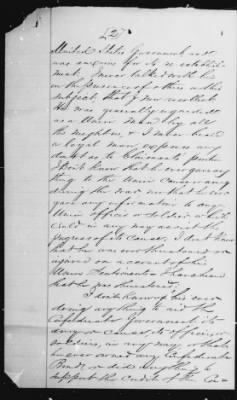 (2)
United States Government and
was anxious for its re establish-
ment, I never talked with him
in the presence of others on this
subject, that I now recollect.
He was generally regarded
as a Union man by all
his neighbors, & I never heard
a loyal man express any
doubt as to Claimants position
I don't know that he ever gave any
thing to the Union cause or any
during the war nor that he ever
gave any information to any
Union officer or Soldier which
could in any way assist the
progress of its cause. I don't know
that he was threatened or
injured on account of his
Union Sentiments. I have heard
that he was threatened.
I don't know of his ever
doing anything to aid the
Confederate Government its
army or cause, its officers or
soldiers, in any way, or that
he ever owned any Confederate
Bonds or did anything to
support the credit of the Con-